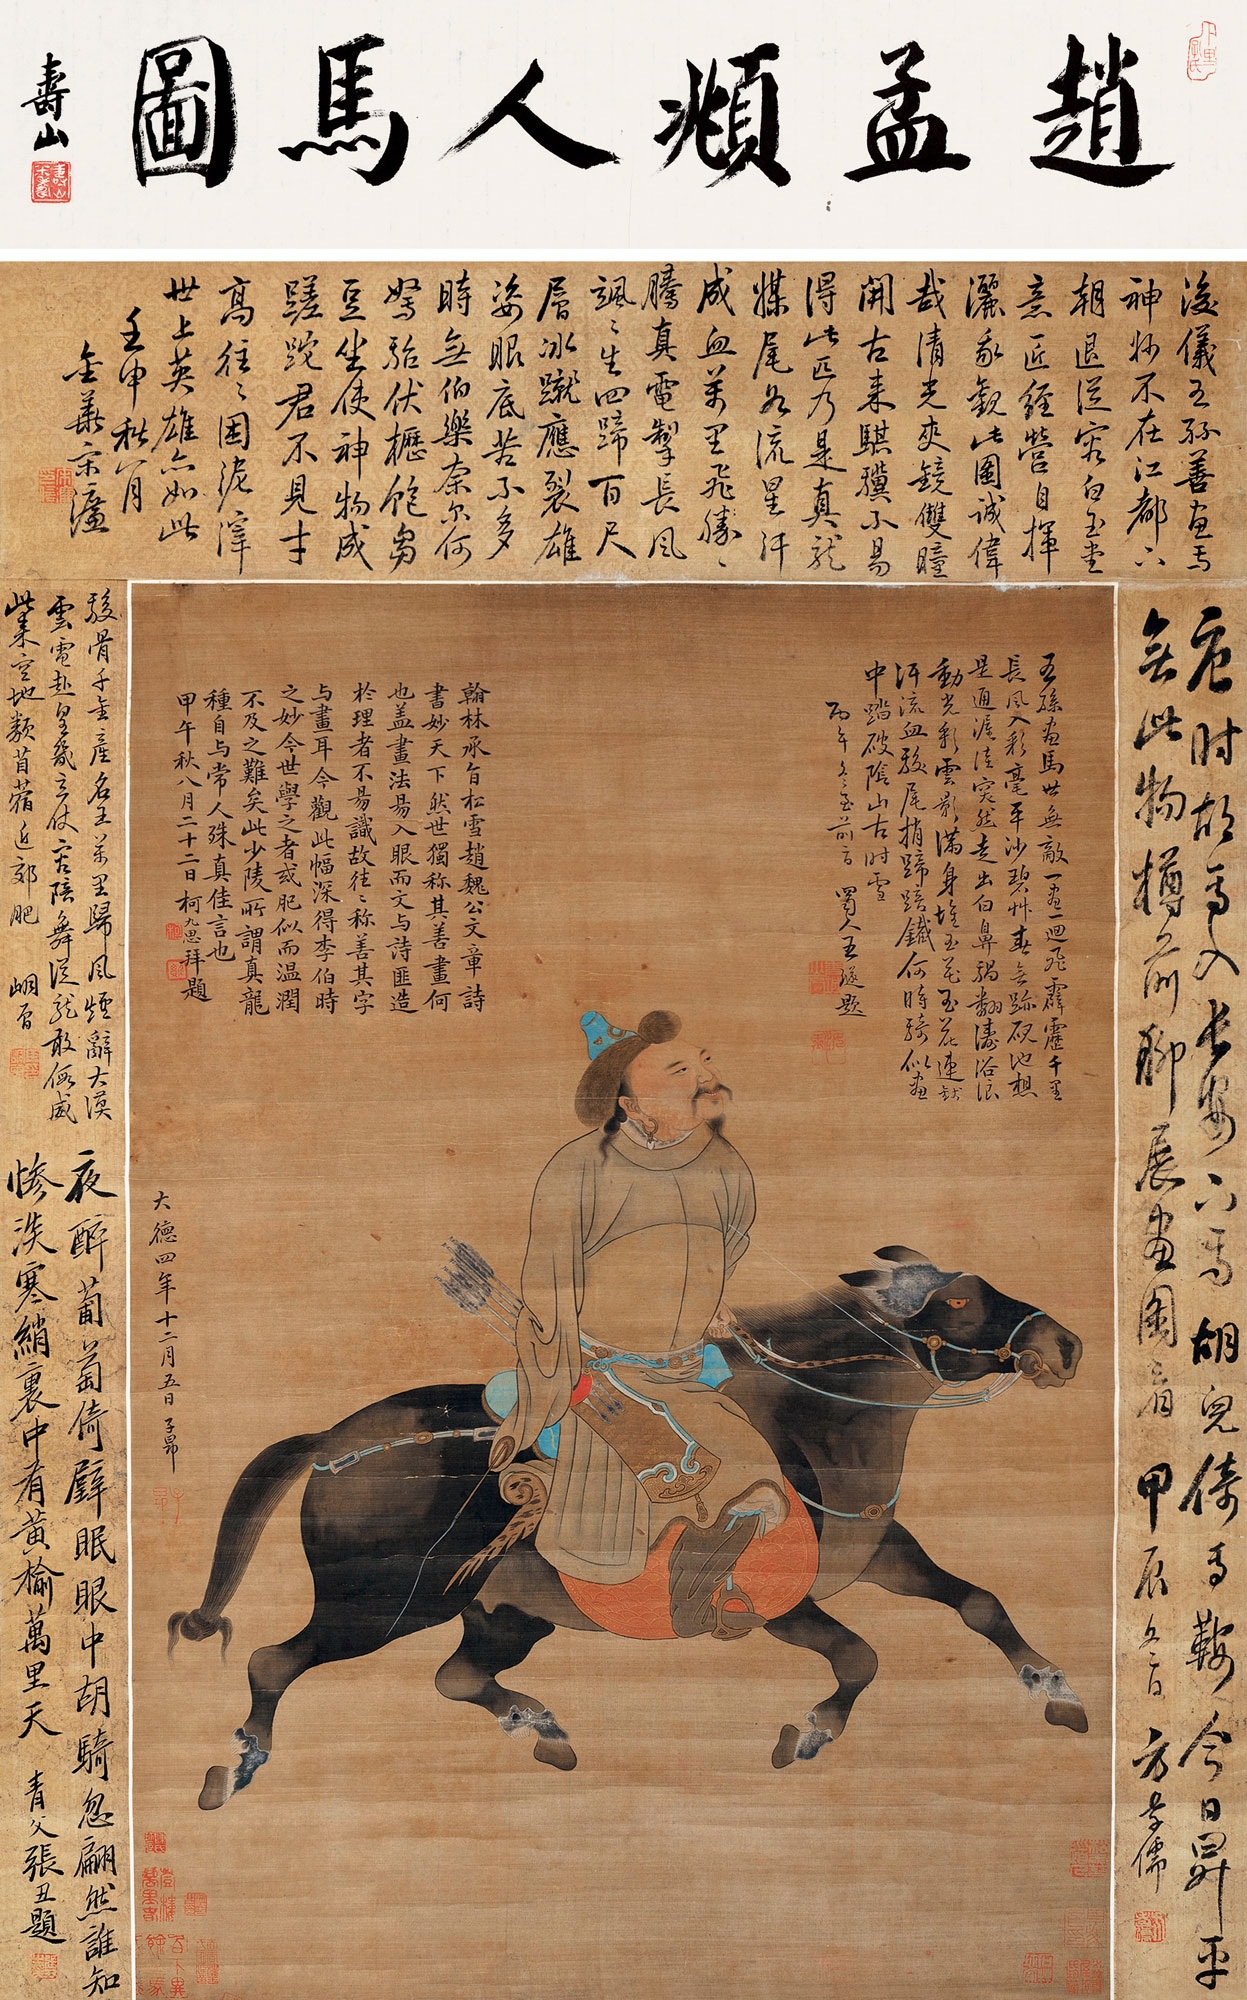 趙孟頫人馬圖
壽山
浚儀王孫善畫馬
神妙不在江都下
朝退從容白玉堂
意匠經營自揮
灑我觀此圖誠偉
哉清光夾鏡雙瞳
開古來騏驥不易
得此匹乃是真龍
媒尾如流星汗
成血萬里飛騰〻
騰真電掣長風
颯〻生四蹄百尺
層冰蹴應裂雄
姿眼底苦不多
時無伯樂奈爾何
駑駘伏櫪飽芻
豆坐使神物成
蹉跎君不見才
高往〻困泥滓
世上英雄亦如此
壬申秋八月
金華宋濂
唐時胡馬入長安下馬胡兒倚馬鞍今日昇平
無此物樽前聊展畫圖看 甲辰冬日 方孝儒
王孫畫馬世無敵一畫一迴飛霹靂千里
長風入彩毫平沙碧草春無跡硯池想
是通渥洼突然走出白鼻騧翻濤浴浪
動光彩雲影滿身堆玉花玉花連錢
汗流血駿尾捎蹄踣鐵何時騎似畫
中踏破陰山古時雪
丙午冬至前二日 蜀人王璲題
翰林承旨松雪趙魏公文章詩
書妙天下然世獨稱其善畫何
也蓋畫法易入眼而文与詩匪造
於理者不易識故往〻称善其字
与畫耳今觀此幅深得李伯時
之妙今世學之者或肥似而温潤
不及之難矣此少陵所謂真龍
種自与常人殊真佳言也
甲午秋八月二十二日柯九思拜題
大德四年十二月五日子昂
駿骨千金産名王萬里歸風煙辭大漠
雲電赴皇畿立仗寧陪舞從龍敢假威
此來空地類苜蓿近郊肥
夜醉葡萄倚壁眠眼中胡騎忽翩然誰知
慘淡寒綃裏中有黄榆萬里天
青父張丑題